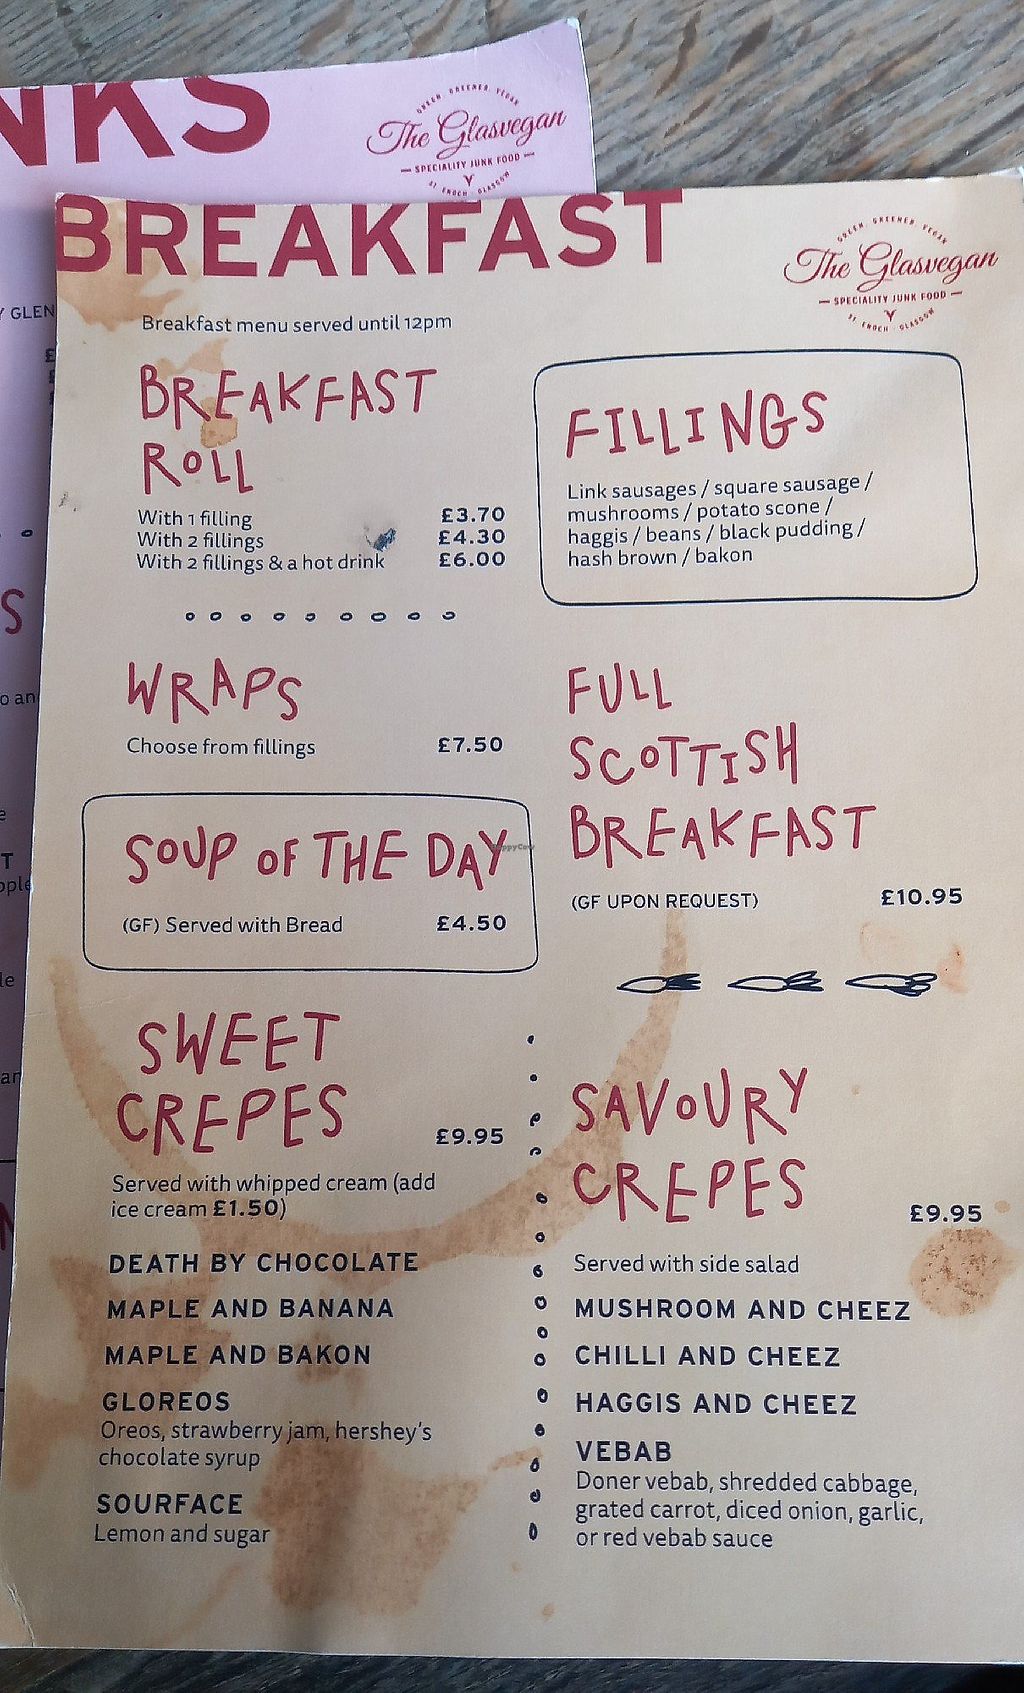 NKS
GREEN. GREENER. VEGAN
The Glasvegan
SPECIALITY JUNK FOOD
ST. ENOCH - GLASGOW
BREAKFAST
GREEN. GREENER. VEGAN
The Glasvegan
SPECIALITY JUNK FOOD
ST. ENOCH - GLASGOW
Breakfast menu served until 12pm
BREAKFAST
ROLL
With 1 filling £3.70
With 2 fillings £4.30
With 2 fillings & a hot drink £6.00
FILLINGS
Link sausages / square sausage /
mushrooms / potato scone /
haggis / beans / black pudding /
hash brown / bakon
WRAPS
Choose from fillings £7.50
FULL
SCOTTISH
BREAKFAST
(GF UPON REQUEST) £10.95
SOUP OF THE DAY
HappyCow
(GF) Served with Bread £4.50
SWEET
CREPES £9.95
Served with whipped cream (add
ice cream £1.50)
DEATH BY CHOCOLATE
MAPLE AND BANANA
MAPLE AND BAKON
GLOREOS
Oreos, strawberry jam, hershey's
chocolate syrup
SOURFACE
Lemon and sugar
SAVOURY
CREPES £9.95
Served with side salad
MUSHROOM AND CHEEZ
CHILLI AND CHEEZ
HAGGIS AND CHEEZ
VEBAB
Doner vebab, shredded cabbage,
grated carrot, diced onion, garlic,
or red vebab sauce